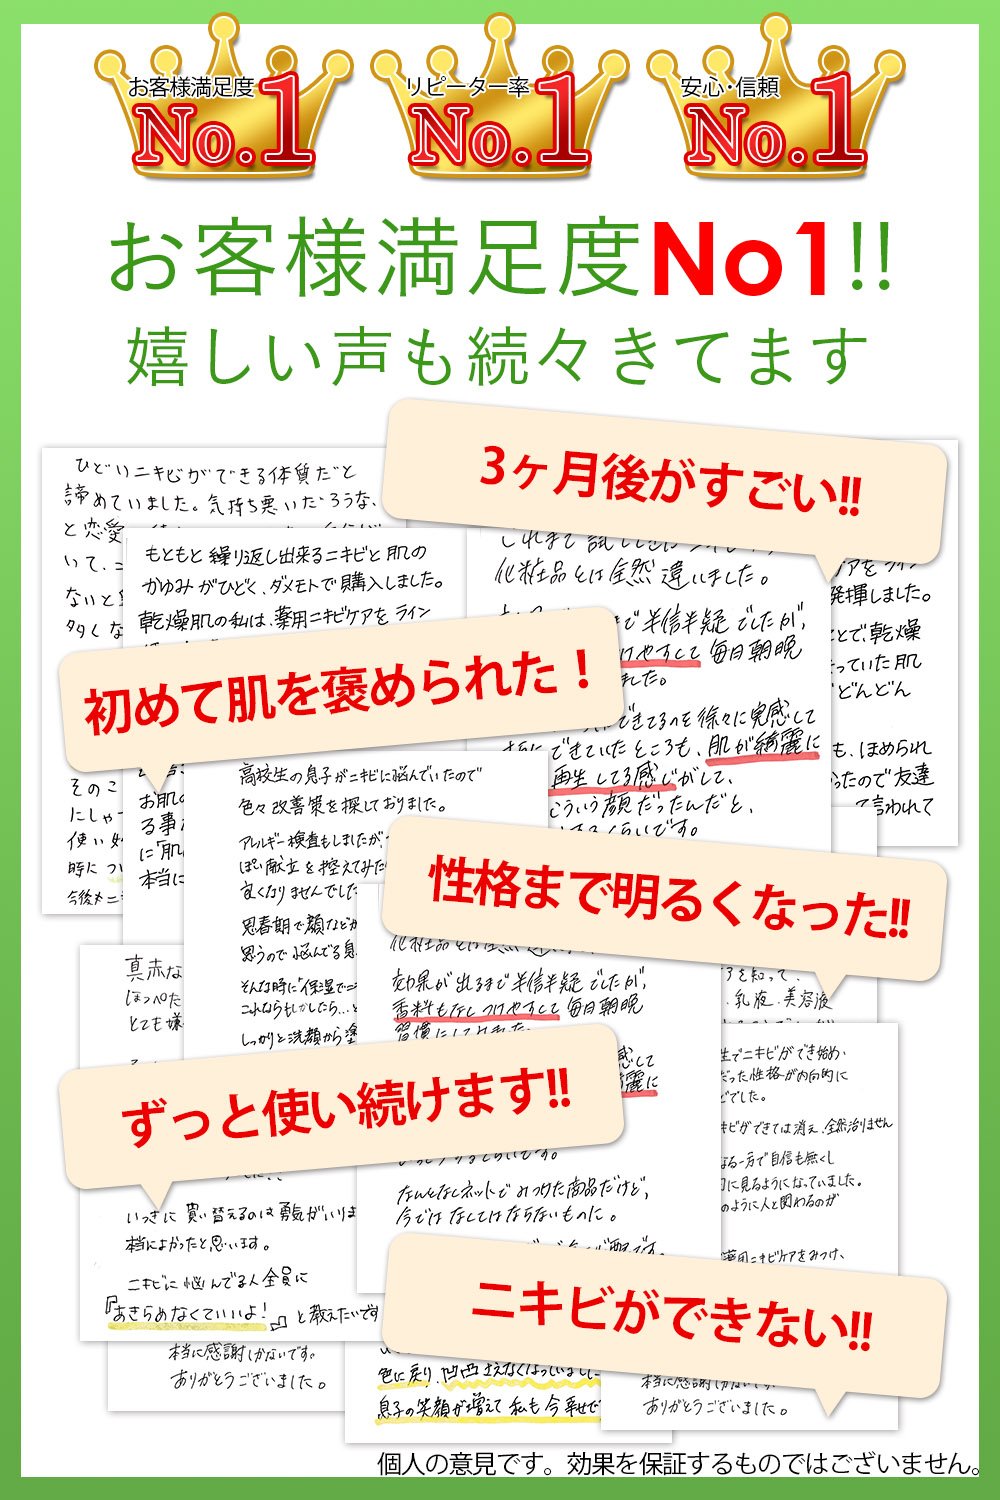 お客様満足度
No.1
リピーター率
No.1
安心・信頼
No.1
お客様満足度No1!!
嬉しい声も続々きてます
3ヶ月後がすごい!!
ひどいニキビができる体質だと
諦めていました。気持ち悪いだろうな、
と恋愛
いて、
ないと
タタしな
もともと繰り返し出来るニキビと肌の
かゆみがひどく、ダメモトで購入しました。
乾燥肌の私は、薬用ニキビケアをライン
化粧品とは全然違いました。
で半信半疑でしたが、
つけやすくて毎日朝晩
ました。
できてるのを徐々に実感して
できていたところも、肌が綺麗に
再生してる感じがして、
こういう顔だったんだと、
するくらいです。
発揮しました。
とで、乾燥
っていた肌
どんどん
も、ほめられ
ったので友達
て言われて
初めて肌を褒められた！
そのこ
にしゃ
使い始
時に
今後も
お肌の
る事が
に「肌
本当に
高校生の息子がニキビに悩んでいたので
色々改善策を探しておりました。
アレルギー検査もしましたが、
ぽい献立を控えてみた
良くなりませんでした
思春期で顔などが
思うので悩んでる息
そんな時に「保湿でニ
これならもしかしたら…と
しっかりと洗顔から塗
性格まで明るくなった!!
化粧品とは全然違い
効果が出るまで半信半疑でしたが、
香料もなしつけやすくて毎日朝晩
習慣にしてみました。
感して
綺麗に
を知って、
、乳液、美容液
真赤な
ほっぺた
とても嫌
生でニキビができ始め、
だった性格が内向的に
どでした。
キビができては消え、全然治りません
なる一方で自信も無くし
に見るようになっていました。
のように人と関わるのが
薬用ニキビケアをみつけ、
ずっと使い続けます!!
いっきに買い替えるのは勇気がいりま
本当によかったと思います。
ニキビに悩んでる人全員に
『あきらめなくていいよ！』と教えたいです
なんとなしネットでみつけた商品だけど、
今ではなくてはならないものに。
ニキビができない!!
本当に感謝しかないです。
ありがとうございました。
色に戻り、凹凸さえなくなっていました
息子の笑顔が増えて私も今幸せで
本当に感謝しかないです
ありがとうございました。
個人の意見です。効果を保証するものではございません。